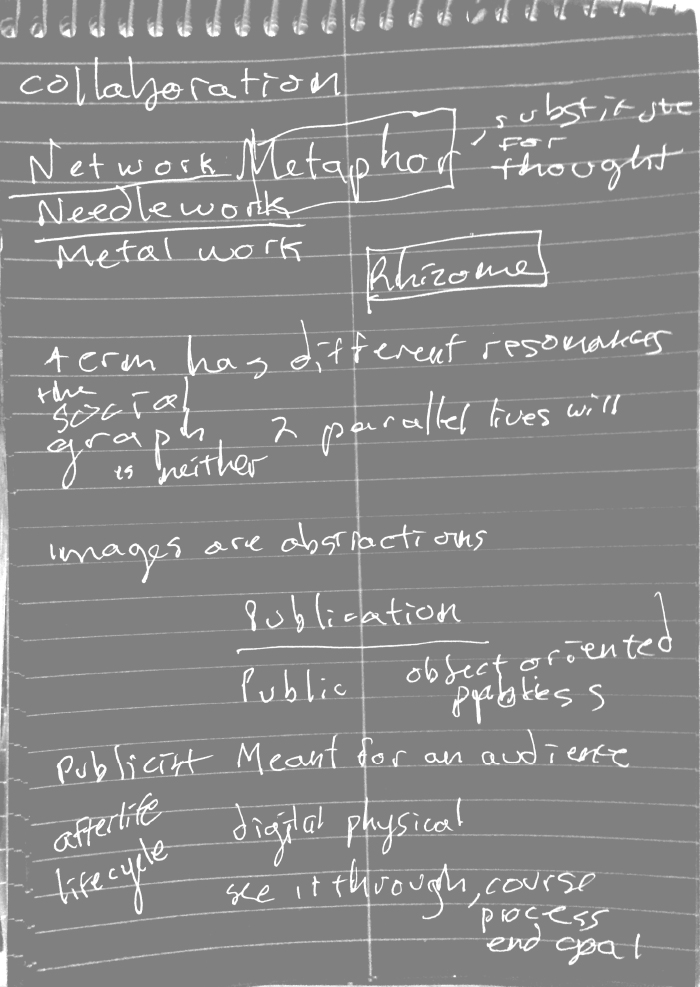 collaboration
Network Metaphor, substitute
for
thought
Needlework
Metal work
Rhizome
term has different resonances
the
social
graph 2 parallel lives will
is neither
images are abstractions
Publication
Public object oriented
Publicist Meant for an audience
afterlife digital physical
lifecycle
see it through, course
process
end goal